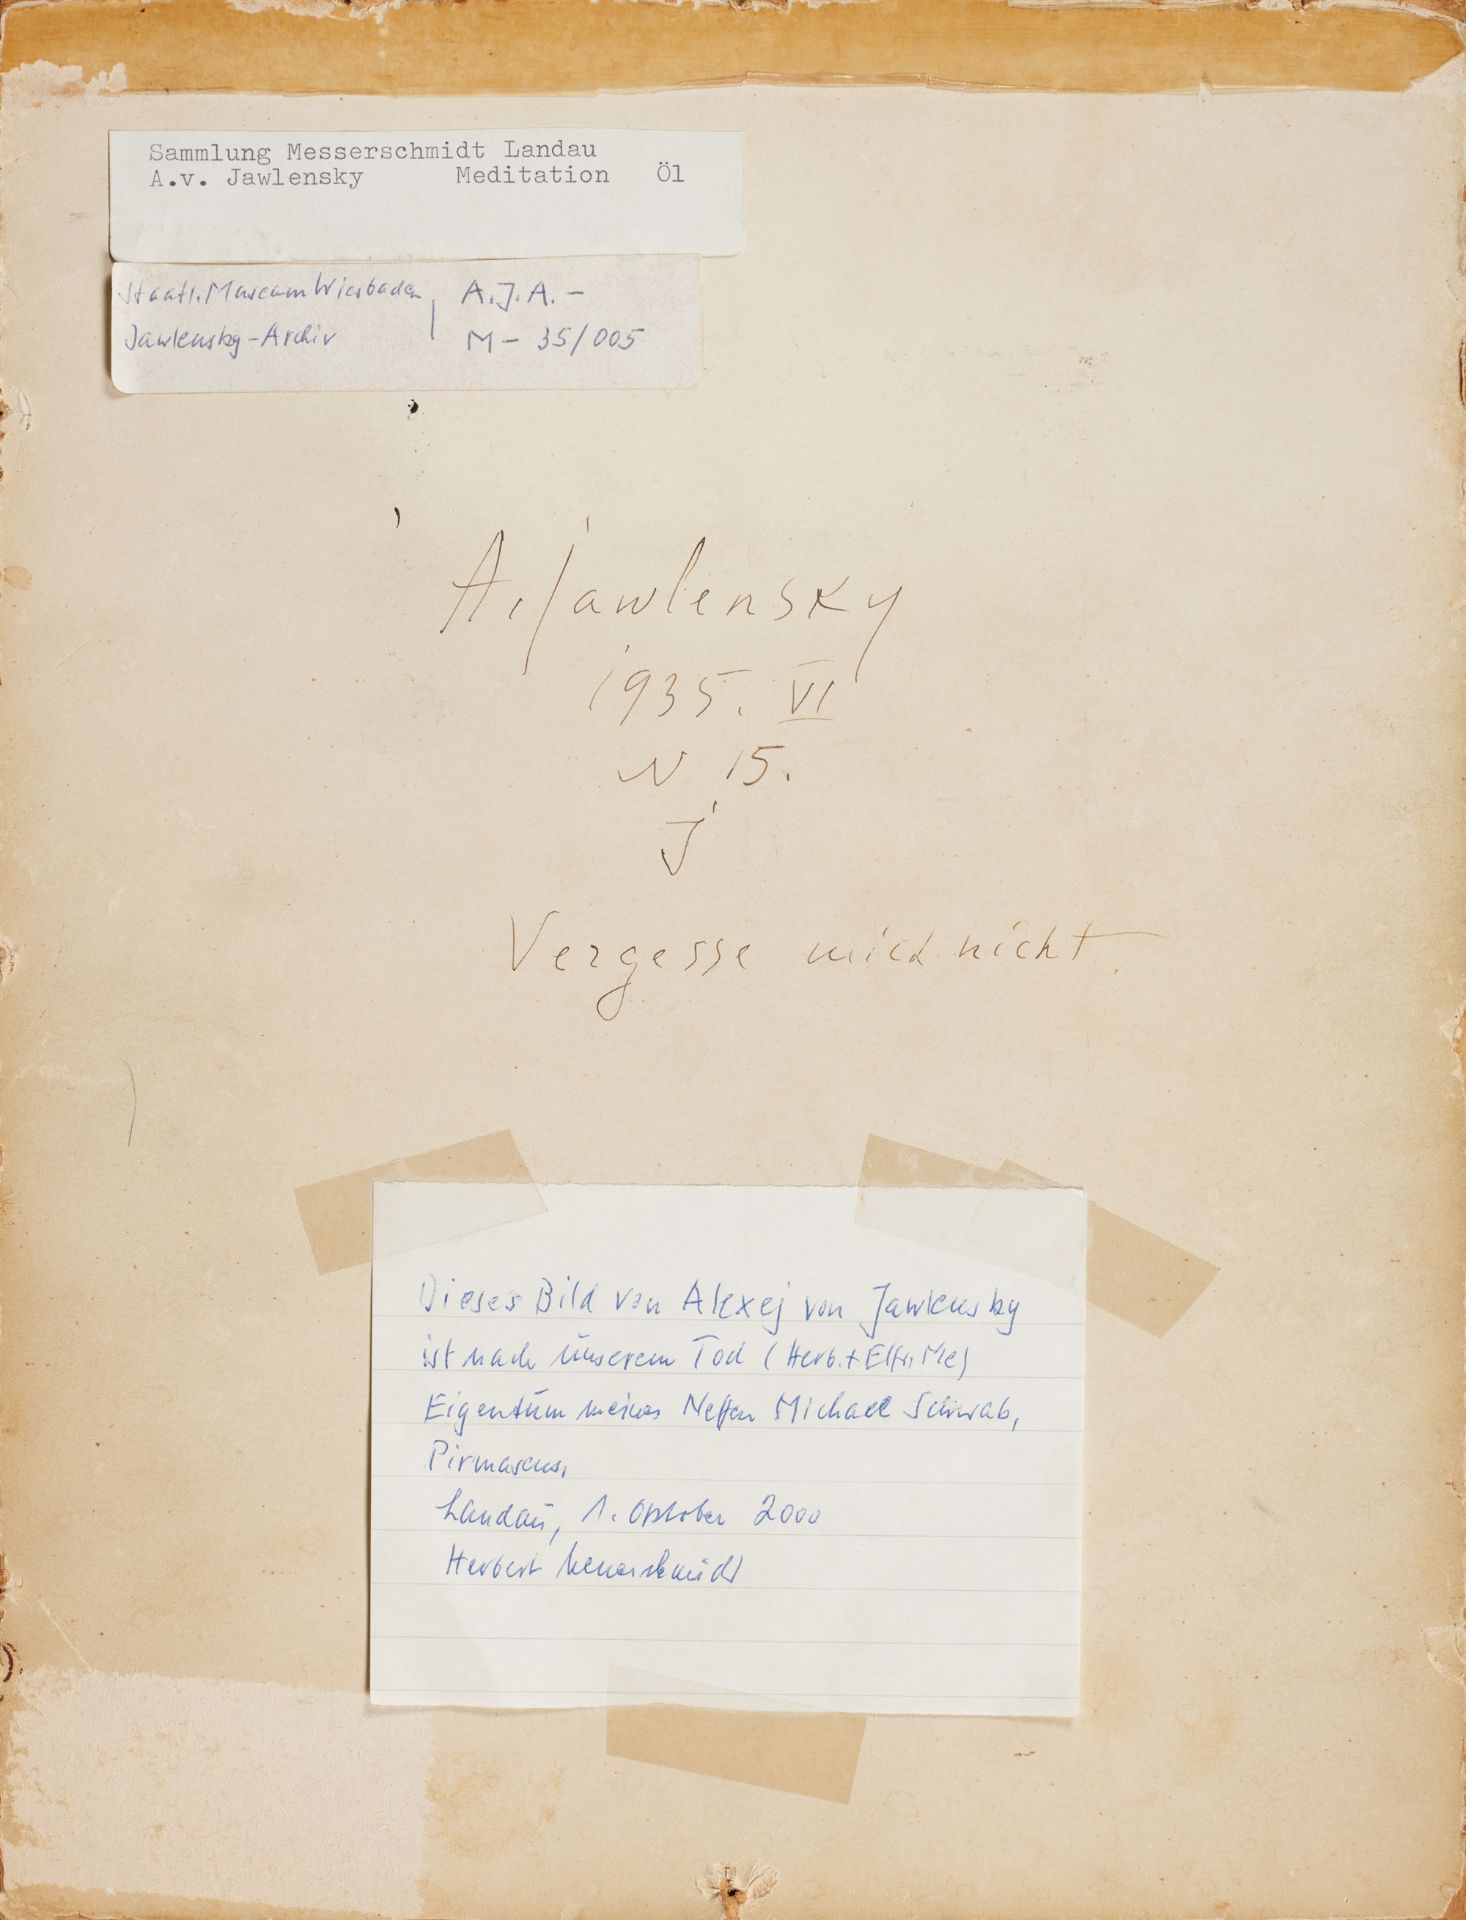 Sammlung Messerschmidt Landau
A.v. Jawlensky Meditation Öl
Staatl. Museum Wiesbaden A.J.A. –
Jawlensky-Archiv M – 35/005
A. Jawlensky
1935. VI
N 15.
J
Vergesse mich nicht.
Dieses Bild von Alexej von Jawlensky
ist nach unserem Tod (Herb. + Elfr. Me)
Eigentum meines Neffen Michael Schwab,
Pirmasens.
Landau, 1. Oktober 2000
Herbert Messerschmidt